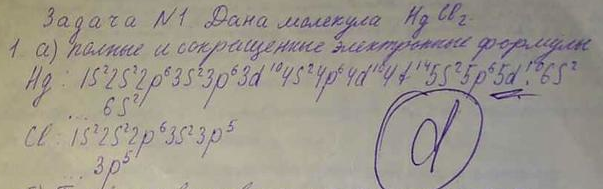 Задача №1. Дана молекула HgCl₂.
1. а) полные и сокращенные электронные формулы
Hg: 1s²2s²2p⁶3s²3p⁶3d¹⁰4s²4p⁶4d¹⁰4f¹⁴5s²5p⁶5d¹⁰6s²
...6s²
Cl: 1s²2s²2p⁶3s²3p⁵
...3p⁵
d